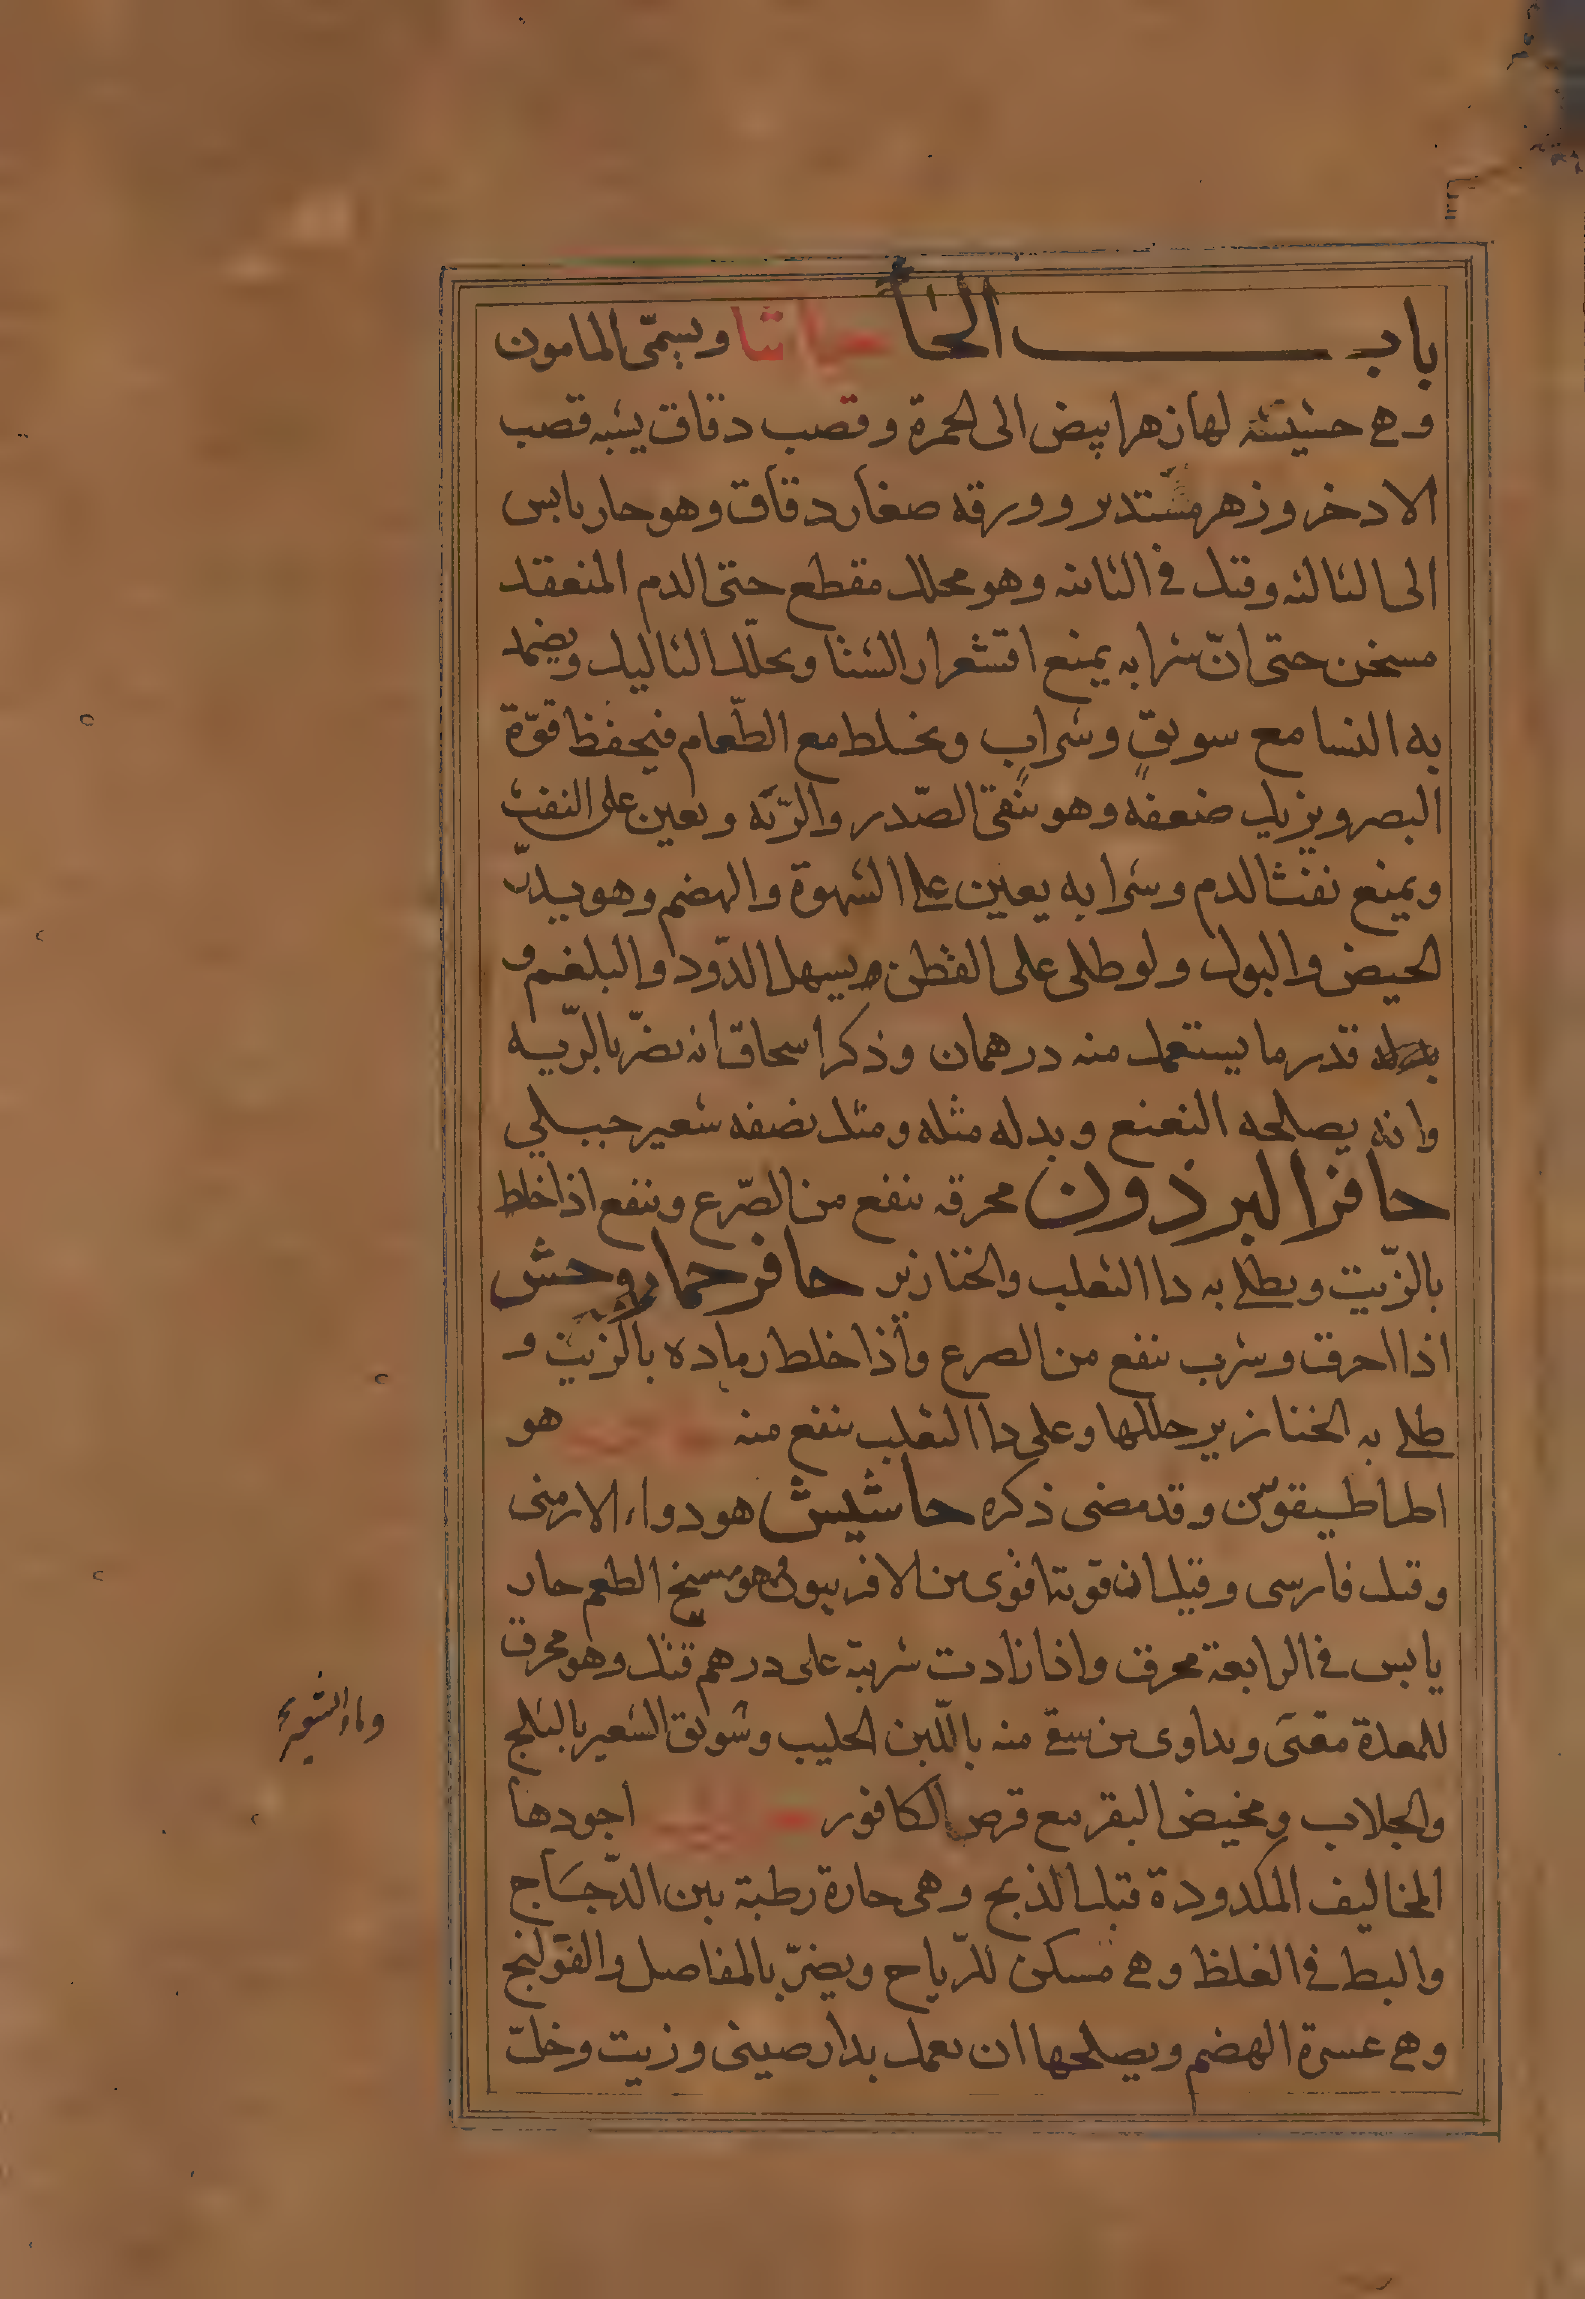 باب الحاء حاشا ويسمّى المامون
وهى حشيشة لها زهر ابيض الى الحمرة وقصب دقاق يشبه قصب
الادخر وزهر مستدير وورقه صغار دقاق وهو حار يابس
الى الثالثه وقيل فى الثانيه وهو محلل مقطع حتى الدم المنعقد
مسخن حتى انّ شرابه يمنع اقشعرار الشتا ويحلّل الثاليل ويضمد
به النسا مع سويقٍ وشرابٍ ويخلط مع الطّعام فيحفظ قوّة
البصر ويزيل ضعفه وهو ينقى الصّدر والرّئه ويعين على النفث
ويمنع نفث الدم وشرابه يعين على الشهوة والهضم وهو يدرّ
الحيض والبول ولو طلى على القطن ويسهل الدّود والبلغم و
قدر ما يستعمل منه درهمان وذكر اسحاق انه يضرّ بالريه
وانه يصلحه النعنع وبدله مثله ومثل نصفه شعير جبلي
حافر البرذون محرقه ينفع من الصّرع وينفع اذا خلط
بالزّيت ويطلى به دا الثعلب والخنازير حافر حمار وحش
اذا احرق وشرب ينفع من الصرع واذا خلط رماده بالزيت و
طلى به الخنازير حللها وعلى دا الثعلب ينفع منه هو
اطراطيقوس وقد مضى ذكره حاشيش هو دواء الارمنى
وقيل فارسى وقيل ان قوتها اقوى من الافربيون وهو مسيخ الطعم حار
يابس فى الرابعة محرق واذا زادت شربة على درهم قتل وهو محرق
للمعدة مقىّ ويداوى من سقى منه باللّبن الحليب وسويق الشعير بالثلج
وماء الشعير
والجلاب ومخيض البقر مع قرص الكافور اجودها
المخاليف المكدودة قبل الذبح وهى حارة رطبة بين الدّجاج
والبط فى الغلظ وهى مسكن للرّياح ويضرّ بالمفاصل والقولنج
وهى عسرة الهضم ويصلحها ان يعمل بدارصينى وزيت وخلّ